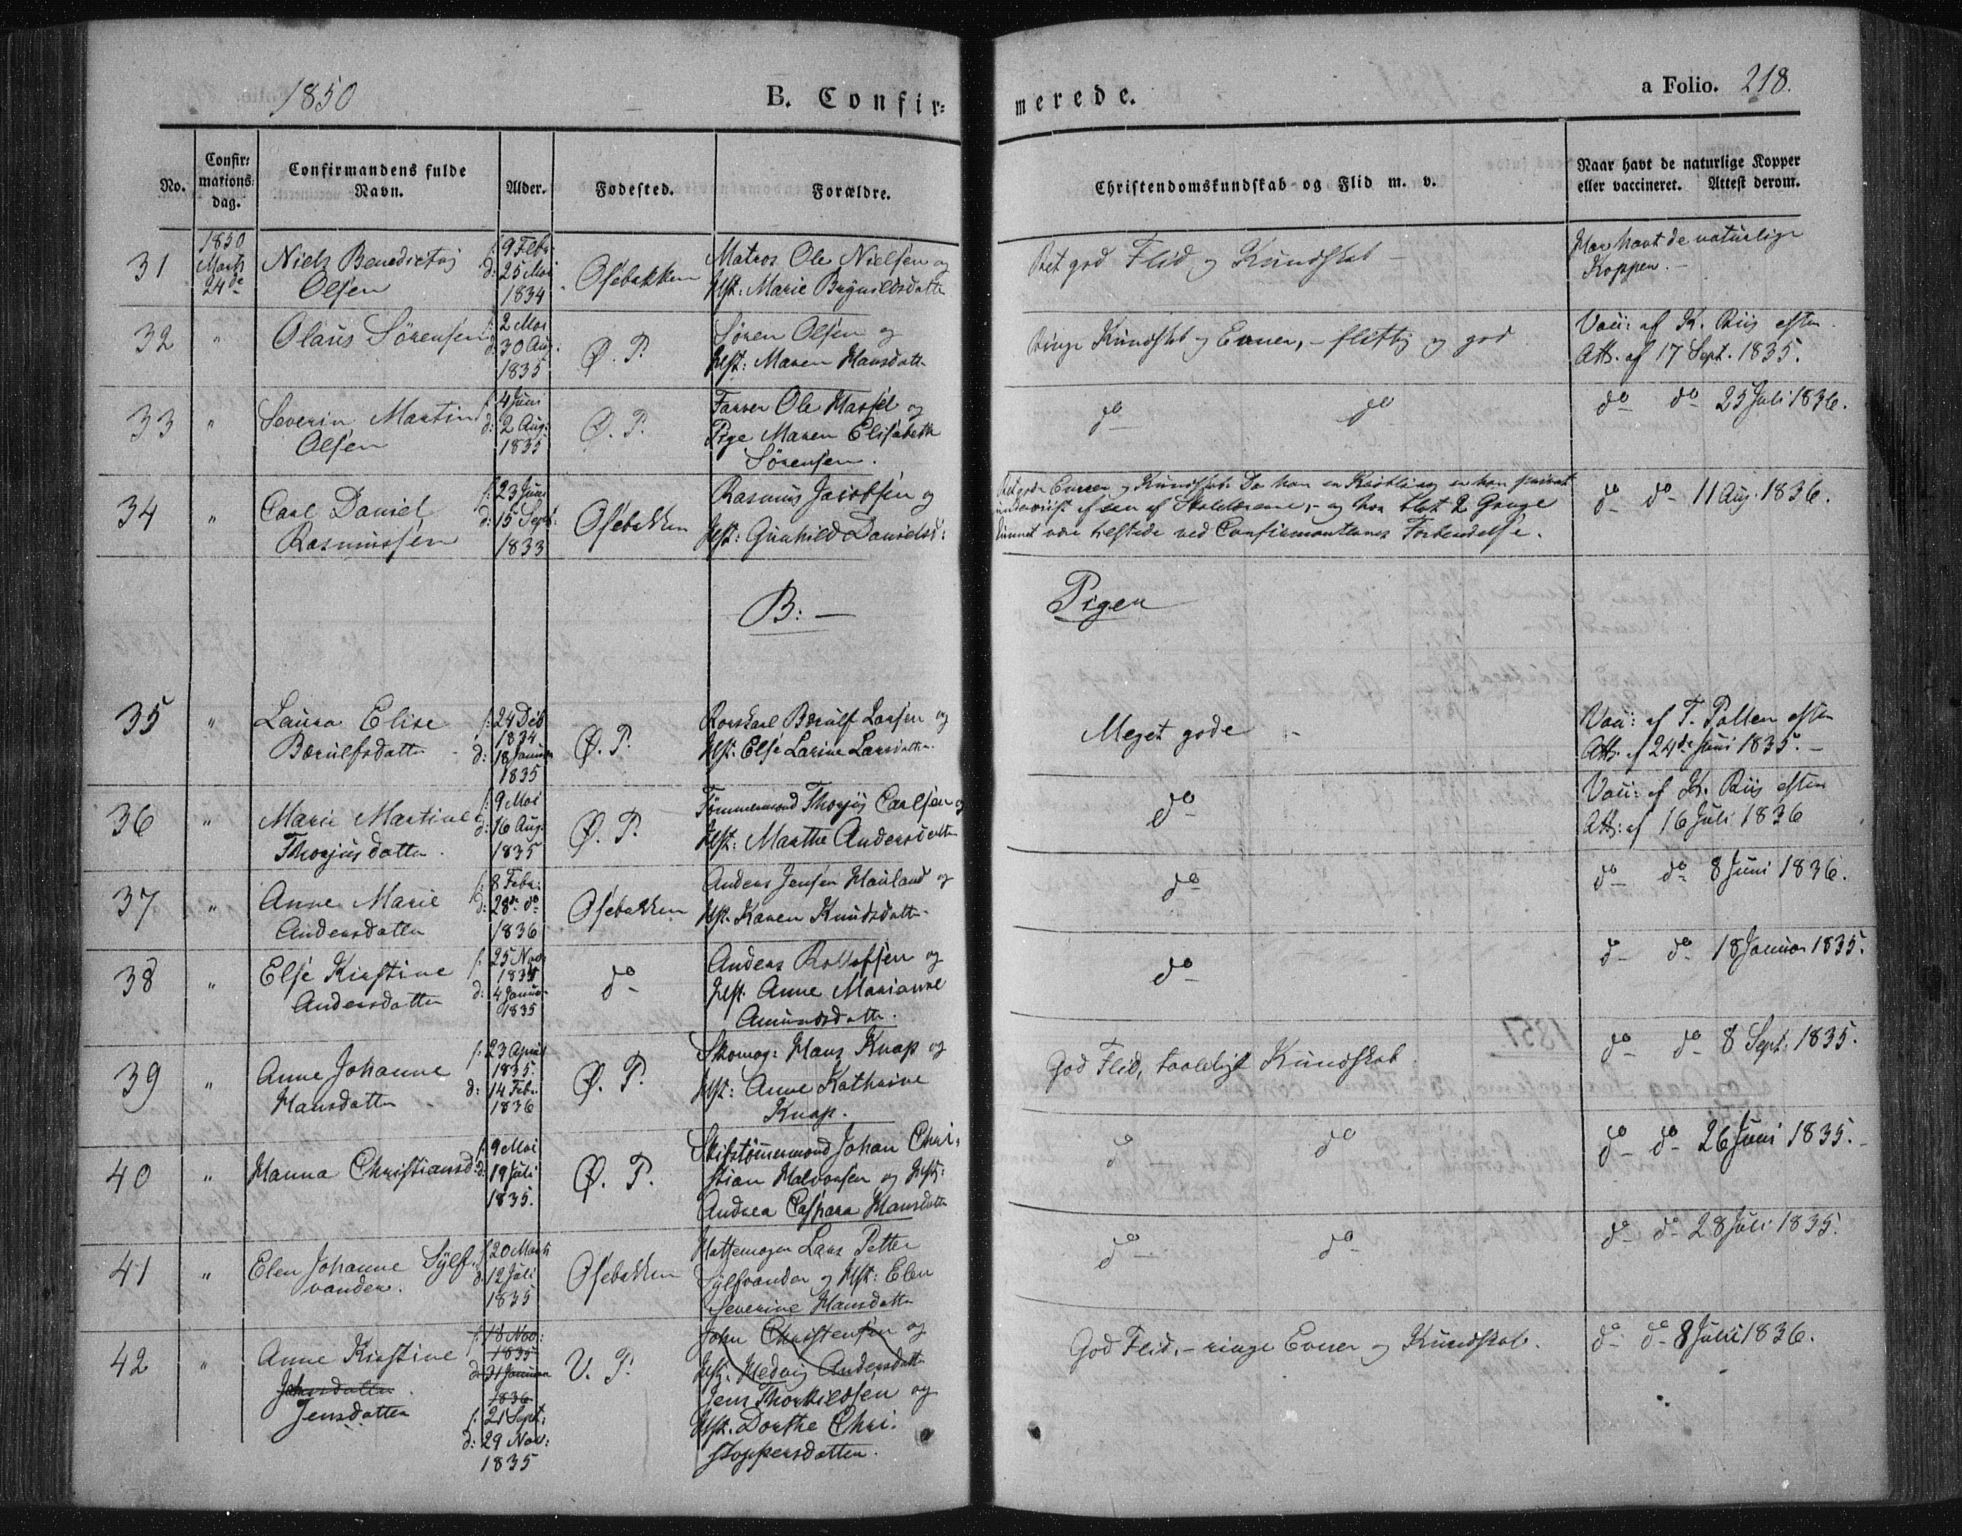 1850
B. Confirmerede.
a Folio. 218.
No.
Confir:mations:dag.
Confirmandens fulde Navn.
Alder.
Fødested.
Forældre.
Christendomskundskab og Flid m. v.
Naar havt de naturlige Kopper eller vaccineret. Attest derom.
31
1850 Marts 24de
Niels Benedictus Olsen
f: 9 Febr: d: 25 Mai 1834
Osebakken
Matros Ole Nielsen og
Hst: Marie Brynildsdatter
Ret god Flid og Kundskab –
Har havt de naturlige
Kopper. –
32
"
Olaus Sörensen
f: 2 Mai d: 30 Aug: 1835
Ø. P.
Sören Olsen og
Hst: Maren Hansdatter
Ringe Kundskab og Evner, – flittig og god
Vacc: af K. Riis efter
Att. af 17 Sept. 1835.
33
"
Severin Martin
Olsen
f: 4 Juni d: 2 Aug. 1835
Ø. P.
Farver Ole Hassel og
Pige Maren Elisabeth
Sörensen.
do do
do do 25 Juli 1836.
34
"
Carl Daniel
Rasmussen
f: 23 Juni d: 15 Sept: 1833
Osebakken
Rasmus Jacobsen og
Hst: Gunhild Danielsd:
Ret gode Evner og Kundskab. Da han er Krøbling er han privat
underviist af en af Skolelærerne, – og har blot 2 Gange
kunnet være tilstede ved Confirmanternes Forberedelse.
do do 11 Aug. 1836.
B: –
Piger
35
"
Laura Elise
Berulfsdatter
f: 24 Deb 1834 d: 18 Januar 1835
Ø. P.
Rorskarl Berulf Larsen og
Hst: Else Larine Larsdatter
Meget gode
Vacc: af T. Polten efter
Att. af 24de Juni 1835. –
36
"
Marie Martine
Thorjusdatter
f: 9 Mai d: 16 Aug. 1835
Ø. P.
Tømmermand Thorjus Carlsen og
Hst: Marthe Andersdatter
do
Vacc: af K. Riis efter
Att: af 16 Juli 1836
37
"
Anne Marie
Andersdatter
f: 8 Febr: d: 28de do 1836
Osebakken
Anders Jensen Hauland og
Hst. Karen Knudsdatter
do
do do 8 Juni 1836.
38
"
Else Kirstine
Andersdatter
f: 25 Nov 1834 d: 4 Januar 1835
do
Anders Rollefsen og
Hst. Anne Marianne
Amundsdatter.
do
do do 18 Januar 1835.
39
"
Anne Johanne
Hansdatter
f: 23 April 1835. d: 14 Febr. 1836
Ø. P.
Skomag: Hans Knap og
Hst: Anne Kathrine
Knap.
God Flid, taaleligt Kundskab
do do 8 Sept: 1835.
40
"
Hanna Christiansd:
f: 9 Mai d: 19 Juli 1835.
Ø. P.
Skibstømmermand Johan Chri:
stian Halvorsen og Hst:
Andrea Caspara Hansdatter
do do
do do 26 Juni 1835.
41
"
Elen Johanne Sylf
vander.
f: 20 Marts d: 12 Juli 1835
Osebakken
Hattemager Lars Petter
Sylfvander og Hst: Elen
Severine Hansdatter
do do
do do 28 Juli 1835.
42
"
Anne Kirstine
Johnsdatter
Jensdatter
f: 18 Nov: 1835 d: 31 Januar 1836
f: 21 Sept: d: 29 Nov: 1835
U. P.
John Christensen og
Hst. Hedvig Andersdatter
Jens Thorkildsen og
Hst. Dorthe Chri:
stoppersdatter.
God Flid, – ringe Evner og Kundskab.
do do 8 Juli 1836.